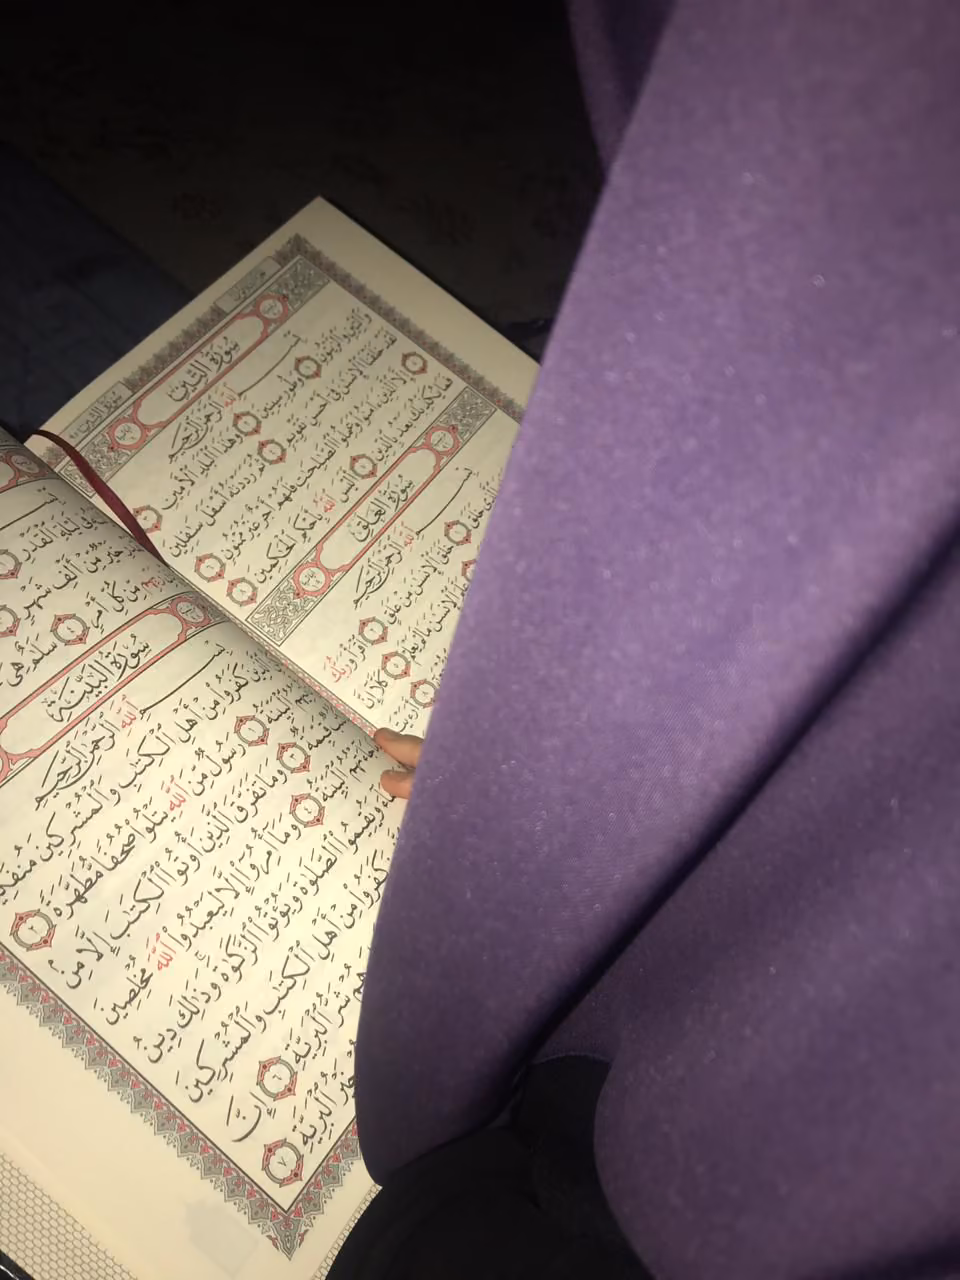 سُورَةُ التِّينِ
بِسْمِ اللَّهِ الرَّحْمَٰنِ الرَّحِيمِ
وَالتِّينِ وَالزَّيْتُونِ ١ وَطُورِ سِينِينَ ٢ وَهَٰذَا الْبَلَدِ الْأَمِينِ ٣
لَقَدْ خَلَقْنَا الْإِنسَٰنَ فِي أَحْسَنِ تَقْوِيمٍ ٤ ثُمَّ رَدَدْنَٰهُ أَسْفَلَ سَٰفِلِينَ
٥ إِلَّا الَّذِينَ ءَامَنُوا وَعَمِلُوا الصَّٰلِحَٰتِ فَلَهُمْ أَجْرٌ غَيْرُ مَمْنُونٍ ٦
فَمَا يُكَذِّبُكَ بَعْدُ بِالدِّينِ ٧ أَلَيْسَ اللَّهُ بِأَحْكَمِ الْحَٰكِمِينَ ٨
سُورَةُ الْعَلَقِ
بِسْمِ اللَّهِ الرَّحْمَٰنِ الرَّحِيمِ
خَلَقَ ١ خَلَقَ الْإِنسَٰنَ مِنْ عَلَقٍ ٢ اقْرَأْ وَرَبُّكَ
الْإِنسَٰنَ مَا لَمْ يَعْلَمْ ٥ كَلَّا إِنَّ
بِسْمِ
فِي لَيْلَةِ الْقَدْرِ
خَيْرٌ مِّنْ أَلْفِ شَهْرٍ
رَبِّهِم مِّن كُلِّ أَمْرٍ ٤ سَلَٰمٌ هِيَ
سُورَةُ الْبَيِّنَةِ
بِسْمِ اللَّهِ الرَّحْمَٰنِ الرَّحِيمِ
الَّذِينَ كَفَرُوا مِنْ أَهْلِ الْكِتَٰبِ وَالْمُشْرِكِينَ مُنفَكِّينَ
الْبَيِّنَةُ ١ رَسُولٌ مِّنَ اللَّهِ يَتْلُوا صُحُفًا مُّطَهَّرَةً ٢
قَيِّمَةٌ ٣ وَمَا تَفَرَّقَ الَّذِينَ أُوتُوا الْكِتَٰبَ إِلَّا مِنۢ
الْبَيِّنَةُ ٤ وَمَا أُمِرُوا إِلَّا لِيَعْبُدُوا اللَّهَ مُخْلِصِينَ
وَيُقِيمُوا الصَّلَوٰةَ وَيُؤْتُوا الزَّكَوٰةَ وَذَٰلِكَ دِينُ
كَفَرُوا مِنْ أَهْلِ الْكِتَٰبِ وَالْمُشْرِكِينَ
هُمْ شَرُّ الْبَرِيَّةِ ٦ إِنَّ
خَيْرُ الْبَرِيَّةِ ٧